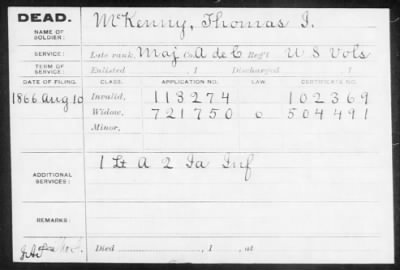 DEAD.
NAME OF SOLDIER: McKenny, Thomas I.
SERVICE: Late rank, Maj Co. A de C Reg't U S Vols
TERM OF SERVICE: Enlisted , 1 Discharged , 1
DATE OF FILING. CLASS. APPLICATION NO. LAW. CERTIFICATE NO.
1866 Aug 10 Invalid, 113274 102369
Widow, 721750 o 504491
Minor,
ADDITIONAL SERVICES: 1 Lt A 2 Ia Inf
REMARKS:
Died , 1 , at